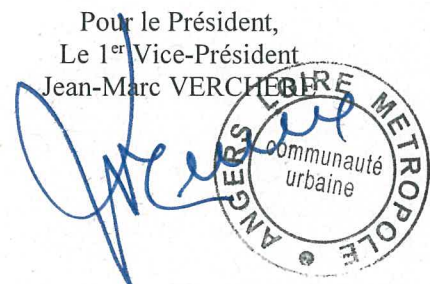 Pour le Président,
Le 1er Vice-Président
Jean-Marc VERCHERE
ANGERS LOIRE METROPOLE
communauté
urbaine